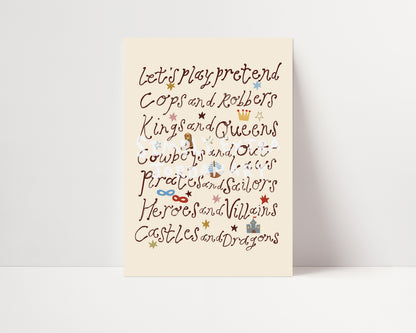 Let's play pretend
Cops and Robbers
Kings and Queens
Cowboys and Out
laws
Pirates and Sailors
Heroes and Villains
Castles and Dragons